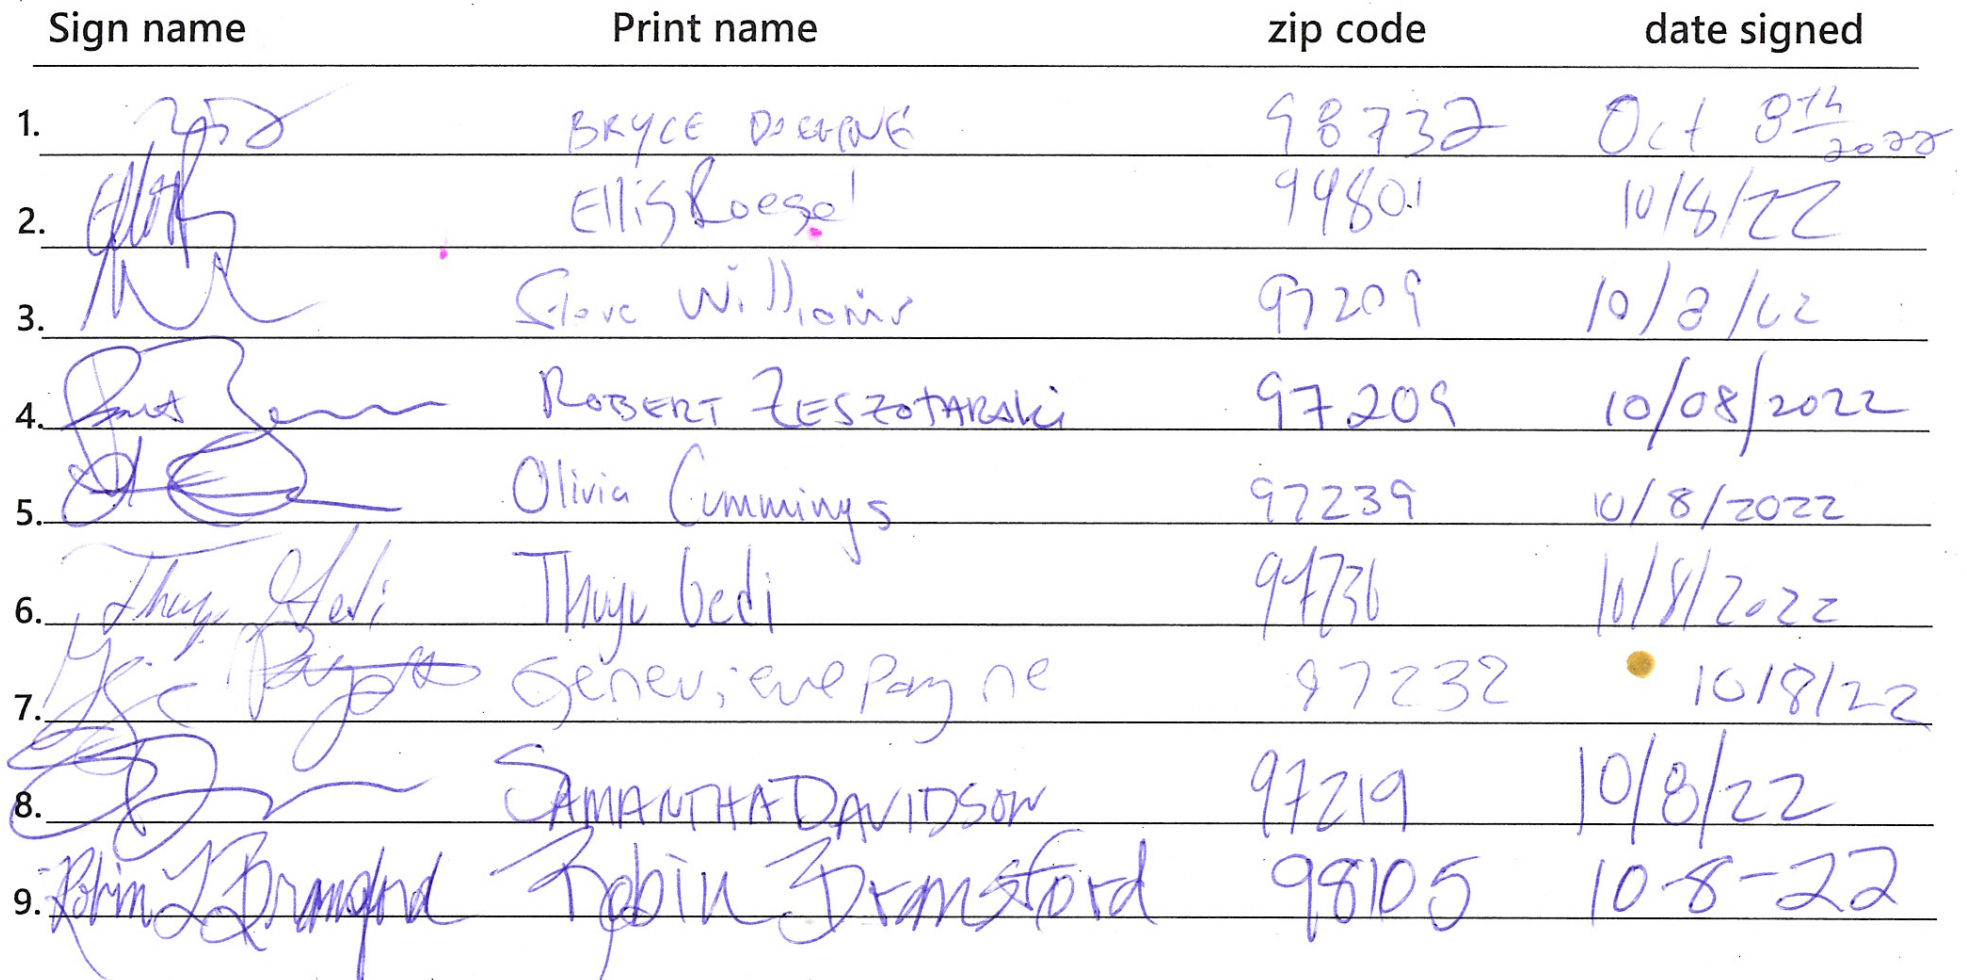 Sign name Print name zip code date signed
1. BRYCE 98732 Oct 8th 2022
2. Ellis Roegel 99801 10/8/22
3. Steve Williams 97209 10/8/22
4. ROBERT ZESZOTARSKI 97209 10/08/2022
5. Olivia Cummings 97239 10/8/2022
6. Thuy Gedi Thuyu Gedi 10/8/2022
7. Genevieve Payne 97232 10/8/22
8. SAMANTHA DAVIDSON 97219 10/8/22
9. Robin L Bransford Robin Bransford 98105 10-8-22